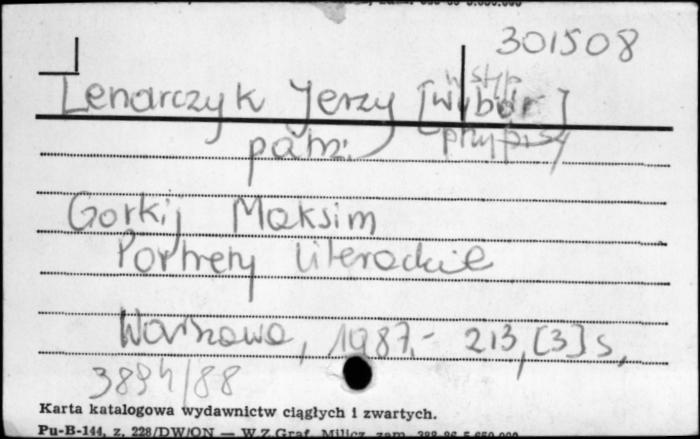 301508
wstęp
Lenarczyk Jerzy [wybór]
patrz: przypisy
Gorkij Maksim
Portrety literackie
Warszawa, 1987.- 213, [3] s.
3894/88
Karta katalogowa wydawnictw ciągłych i zwartych.
Pu-B-144, z. 228/DW/ON — W.Z.Graf. Milicz, zam.